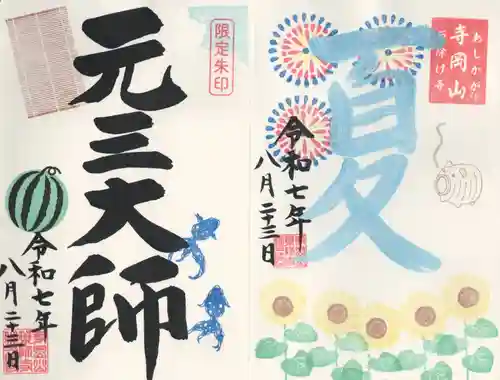 夏
寺岡山
あしかが
厄除け寺
令和七年
八月二十三日
限定朱印
元三大師
令和七年
八月二十三日